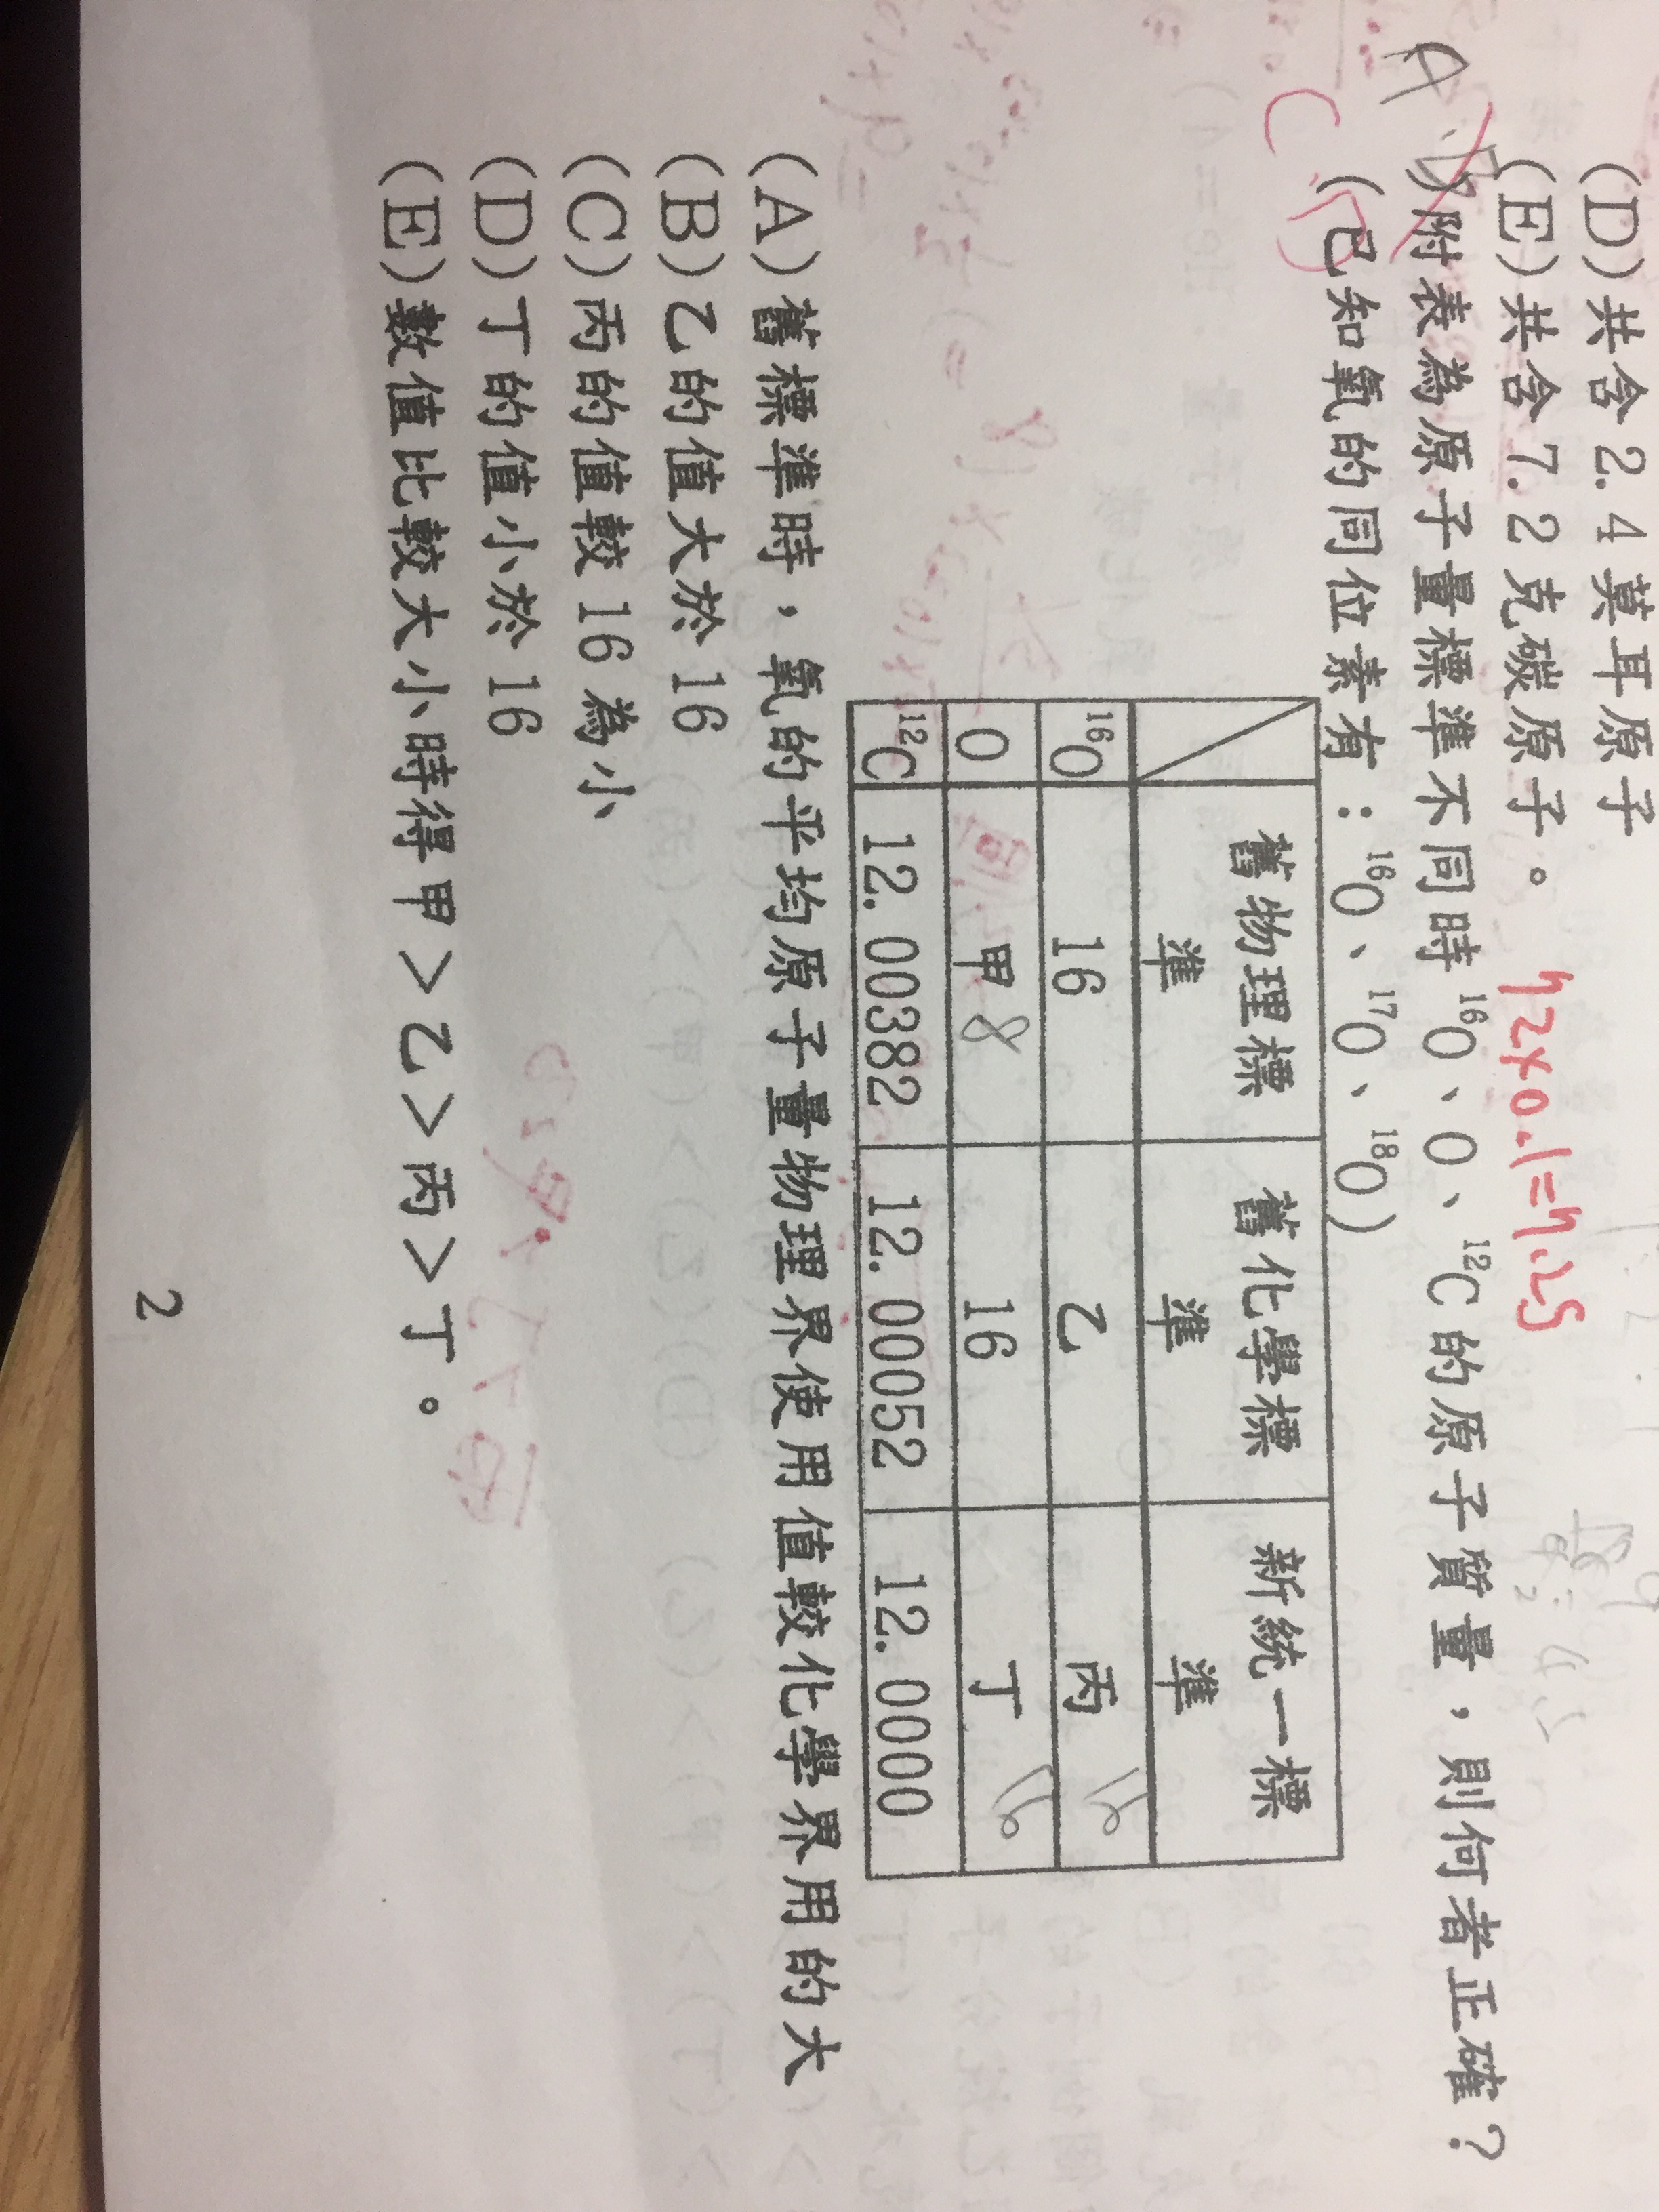 (D)共含 2.4 莫耳原子
(E)共含 7.2 克碳原子。
72×0.1=7.2
附表為原子量標準不同時 ¹⁶O、O、¹²C 的原子質量，則何者正確？
(已知氧的同位素有：¹⁶O、¹⁷O、¹⁸O)
A
C
舊物理標準 舊化學標準 新統一標準
¹⁶O 16 乙 丙
O 甲 8 16 丁
¹²C 12.00382 12.00052 12.0000
(A)舊標準時，氧的平均原子量物理界使用值較化學界用的大
(B)乙的值大於 16
(C)丙的值較 16 為小
(D)丁的值小於 16
(E)數值比較大小時得甲＞乙＞丙＞丁。
2